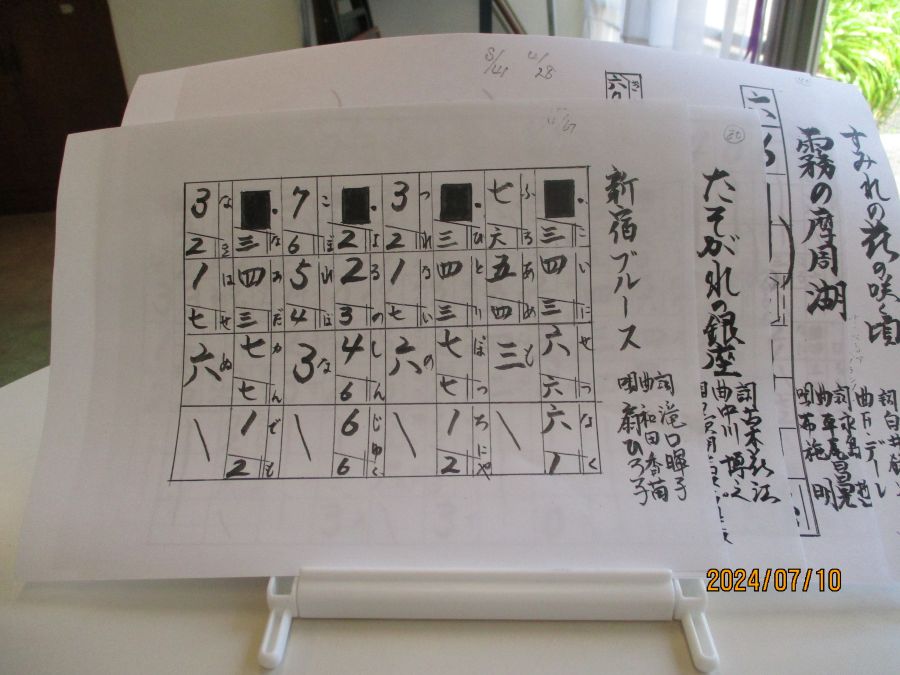 すみれの花の咲く頃
霧の摩周湖
詞 水島 哲
曲 平尾昌晃
唄 布施 明
たそがれの銀座
詞 古木花江
曲 中川博之
新宿ブルース
詞 滝口暉子
曲 和田香苗
唄 扇ひろ子
三 四 三 六 六 六 1
こいにせつなく
七 六 五 四 三
ふるあめも
三 四 三 七 七 1 2
ひとりぼっちにゃ
3 2 1 七 六
つれないの
2 2 3 4 6 6 6
よるのしんじゅく
7 6 5 4 3
こぼれはな
三 四 三 七 七 1 2
なみだかんでも
3 2 1 七 六
なきはせぬ
2024/07/10